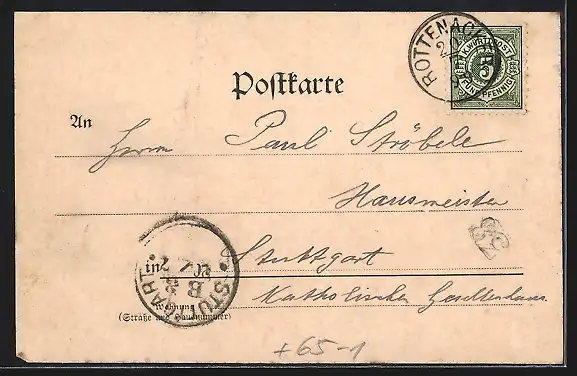 ROTTENACKER
K. WÜRTT. POST
5
FÜNF PFENNIG
Postkarte
An
Herrn Paul Ströbele
Hausmeister
in Stuttgart
STUTTGART
Katholisches Gesellenhaus
Wohnung
(Straße und Hausnummer)
+65-1